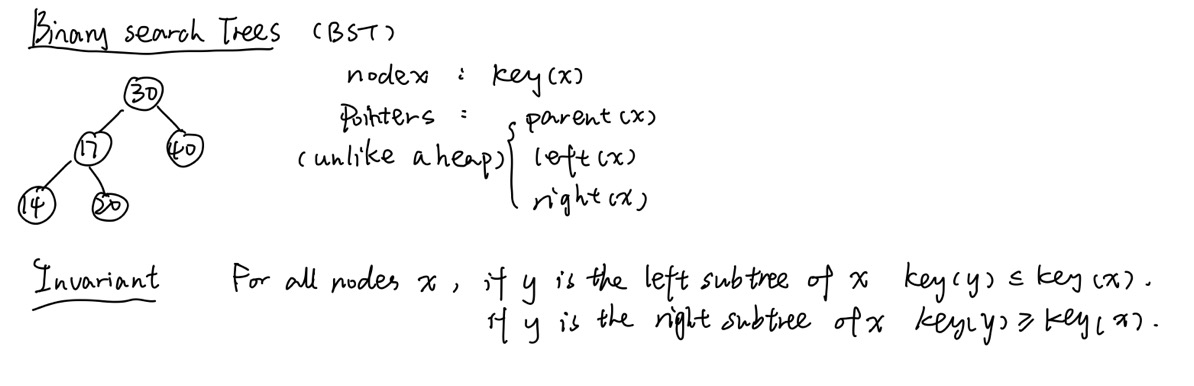 Binary search Trees (BST)
node x : key(x)
30
Pointers : { parent(x)
17 40
(unlike a heap) left(x)
right(x)
14 20
Invariant For all nodes x, if y is the left subtree of x key(y) ≤ key(x).
If y is the right subtree of x key(y) ≥ key(x).